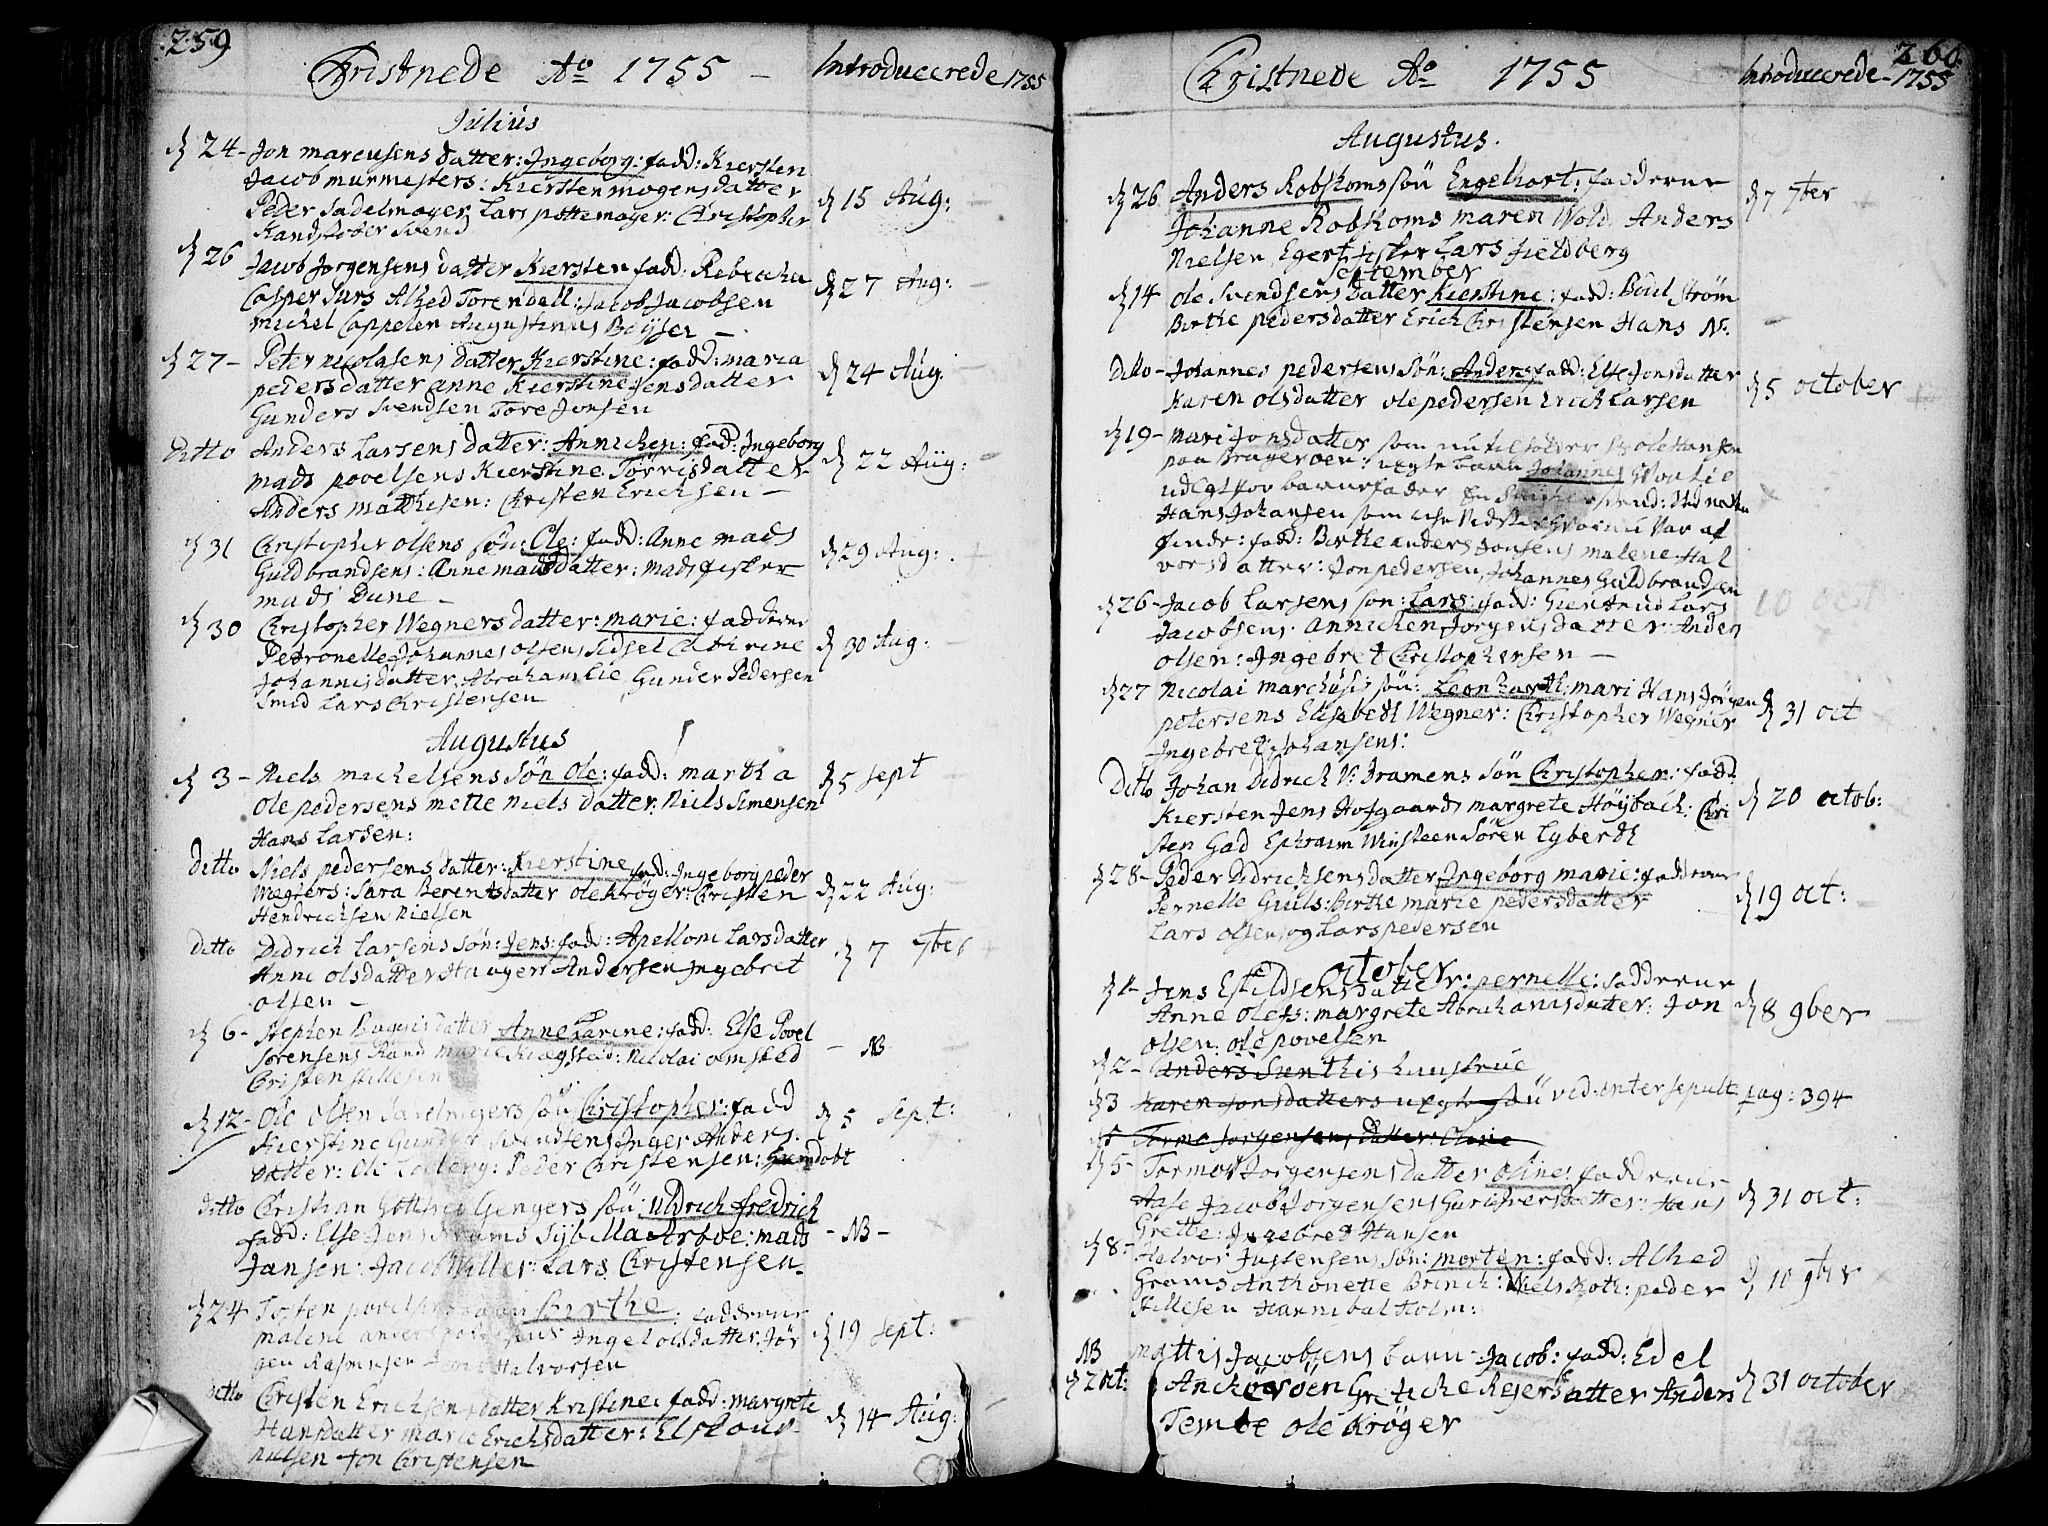 259
Christnede Ao 1755 –
Introducerede 1755
Julius
d 24 – Jon marcusens datter: Ingeborg: fadd: Kiersten
Jacob murmesters: Kiersten mogensdatter
Peder Sadelmager Lars pottemager: Christopher
Kandstøber Svend
d 15 Aug:
d 26 Jacob Jorgensens datter Kiersten fadd: Rebecha
Casper Surs Alhed Torendall: Jacob Jacobsen
michel Cappelen Augustinus Beyser –
d 27 Aug:
d 27 – Peter nicolasens datter Kierstine: fadd: maria
pedersdatter anne Kierstine Jensdatter
Gunders Svendsen Tore Jonsen
d 24 Aug.
Ditto Anders Larsens datter: Annichen: fad: Ingeborg
mads povelsens Kierstine Törrisdatter
Anders matthisen: Christen Erichsen –
d 22 Aug:
d 31 Christopher olsens søn: Ole: fadd: Anne mads
Guldbrandsens: Anne madsdatter: mads fisker
mads Dune –
d 29 Aug:
d 30 Christopher Wegners datter: marie: fadderne
Petronelle Johannes olsens Sidsel Cathrine
Johannisdatter. Abraham Lie Gunder Pedersen
Smed Lars Christensen
d 30 Aug:
Augustus
d 3 – Niels michelsens søn Ole: fadd: martha
Ole pedersens mette niels datter: Niels Simensen
Hans Larsen:
d 5 sept
Ditto Niels pedersens datter: Kierstine fad: Ingeborg peder
Wegters: Sara Berentsdatter ole Krøger: Christen
Hendrichsen Nielsen
d 22 Aug:
Ditto Didrich Larsens søn: Jens: fad: Apelloni Larsdatter
Anne olsdatter Haagen Andersen Ingebret
olsen –
d 7 7ber
d 6 – Stephen datter Anne Karine: fadd: Else Povel
Sørensens Rand marie Krogsted: Nicolai omsted
Christen stillesen
– NB
d 12 – Ole olsen søn Christopher: fadd
Kierstine Gunder Svendsens Inger Anders
datter: Ole Peder Christensen:
d 5 sept:
ditto Christian Gottfred Gengers søn: Uldrich fredrich
fadd: Else Jens Sybilla Arboe: mads
Jansen: Jacob Lars Christensen
– NB –
d 24 Tosten Birthe: fadderne
malene anders Ingel olsdatter: Jør
gen Rasmusen Halvorsen
d 19 sept:
ditto Christen Erichsens datter Kristine: fadd: margrete
Hansdatter marie Erichsdatter: El
nielsen Jon Christensen
d 14 Aug:
260
Christnede Ao 1755
Introducerede – 1755
Augustus.
d 26 Anders Robskoms søn Engelhart: fadderne
Johanne Robskoms maren Wold Anders
Nielsen Egert fisker Lars fieldberg
d 7 7ber
September
d 14 Ole Svendsens datter Kierstine: fadd: Bodil Strøm
Birthe pedersdatter Erich Christensen Hans N:
Ditto – Johannes pedersens Søn: Anders fadd: Else Jonsdatter
Karen olsdatter ole pedersen Erich Larsen
d 5 october
d 19 – Mari Jonsdatter som nu til holder ole Hansen
paa Bragerøen: uegte barn Johannes
udlagt for barnefader
Hans Johansen som var af
fadd: Birthe anders Jonsens malene Hal
vorsdatter: Jon pedersen, Johannes Guldbrandsen
d 26 – Jacob Larsens søn: Lars: fadd: Giertrud Lars
Jacobsens: Annichen Jørgensdatter: Anders
olsen: Ingebret Christophersen –
d 27 Nicolai marchusis søn: Leonhardt: mari Hans Jørgen
petersens Elisabeth Wegner: Christopher Wegner
Ingebret Johansens:
d 31 oct
Ditto Johan Didrich V: Jramens søn Christopher: fadd:
Kiersten Jens Hofgaards margrete Höybach: Chri
sten Gad Ephraim Winsteen Søren Lyberth
d 20 octob:
d 28 – Peder Didrichsens datter Ingeborg marie: fadderne
Pernelle Guuls: Birthe marie pedersdatter
Lars olsen og Lars pedersen
d 19 oct:
october
d 1 – Jens Eskildsens datter: pernelle: fadderne
Anne Olefs: margrete Abrahamsdatter: Jon
olsen: ole povelsen
d 8 9ber
d 2 – anders hustrue
d 3 Karen Jonsdatters uegte søn vid: inter sepult pag: 394
d 5 Tormo Jorgensens datter Olisie
d 5 – Tormo Jorgensens datter olsine: fadderne
Aase Jacob Jorgensens Guri datter: Hans
Grette: Ingebret Hansen
d 31 oct:
d 8 – Halvor Justensens søn: morten: fadd: Alhed
Grams Anthonette Brinch: Niels Roth: peder
Stillesen Hannibal Holm:
d 10 9ber
NB
d 2 oct: mattis Jacobsens barn – Jacob: fadd: Edel
Anchersøen Grethe Reiersdatter Anders
Temte ole Krøger
d 31 october